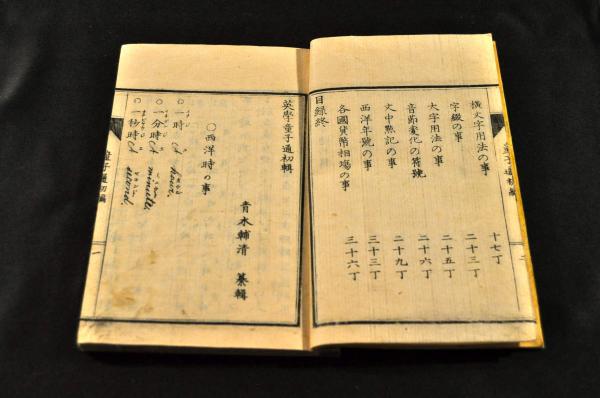 横文字用法の事 十七丁
字綴の事 二十三丁
大字用法の事 二十五丁
音節変化の符號 二十六丁
文中點記の事 二十九丁
西洋年號の事 三十三丁
各國貨幣相場の事 三十六丁
目録終
童子通初編
二
英學童子通初輯
青木輔清 纂輯
○西洋時の事
○一時 a hour.
○一分時 a minute.
○一秒時 a second.
童子通初編
一